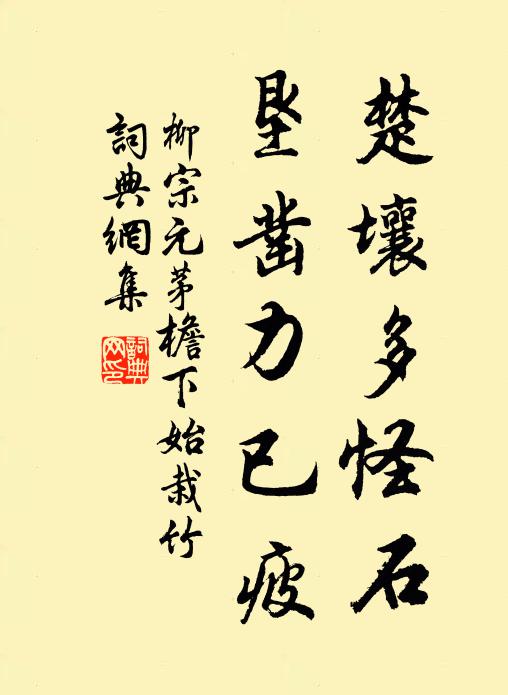 楚壤多怪石
垦凿力已疲
柳宗元茅檐下始栽竹
詞典網集
詞典网印